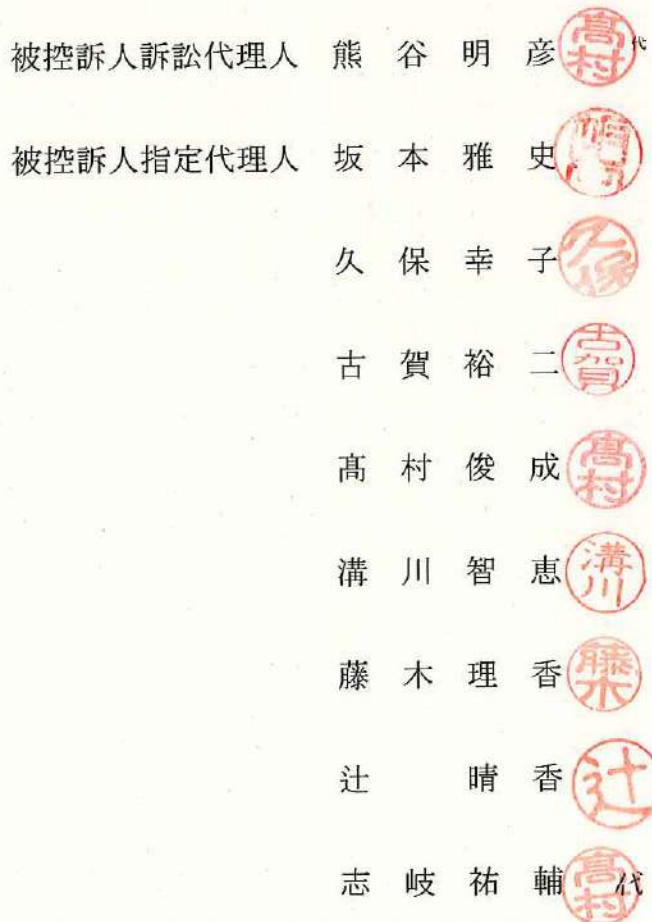 被控訴人訴訟代理人 熊谷明彦 髙村 代
被控訴人指定代理人 坂本雅史
久保幸子 久保
古賀裕二 古賀
髙村俊成 髙村
溝川智恵 溝川
藤木理香 藤木
辻 晴香 辻
志岐祐輔 髙村 代